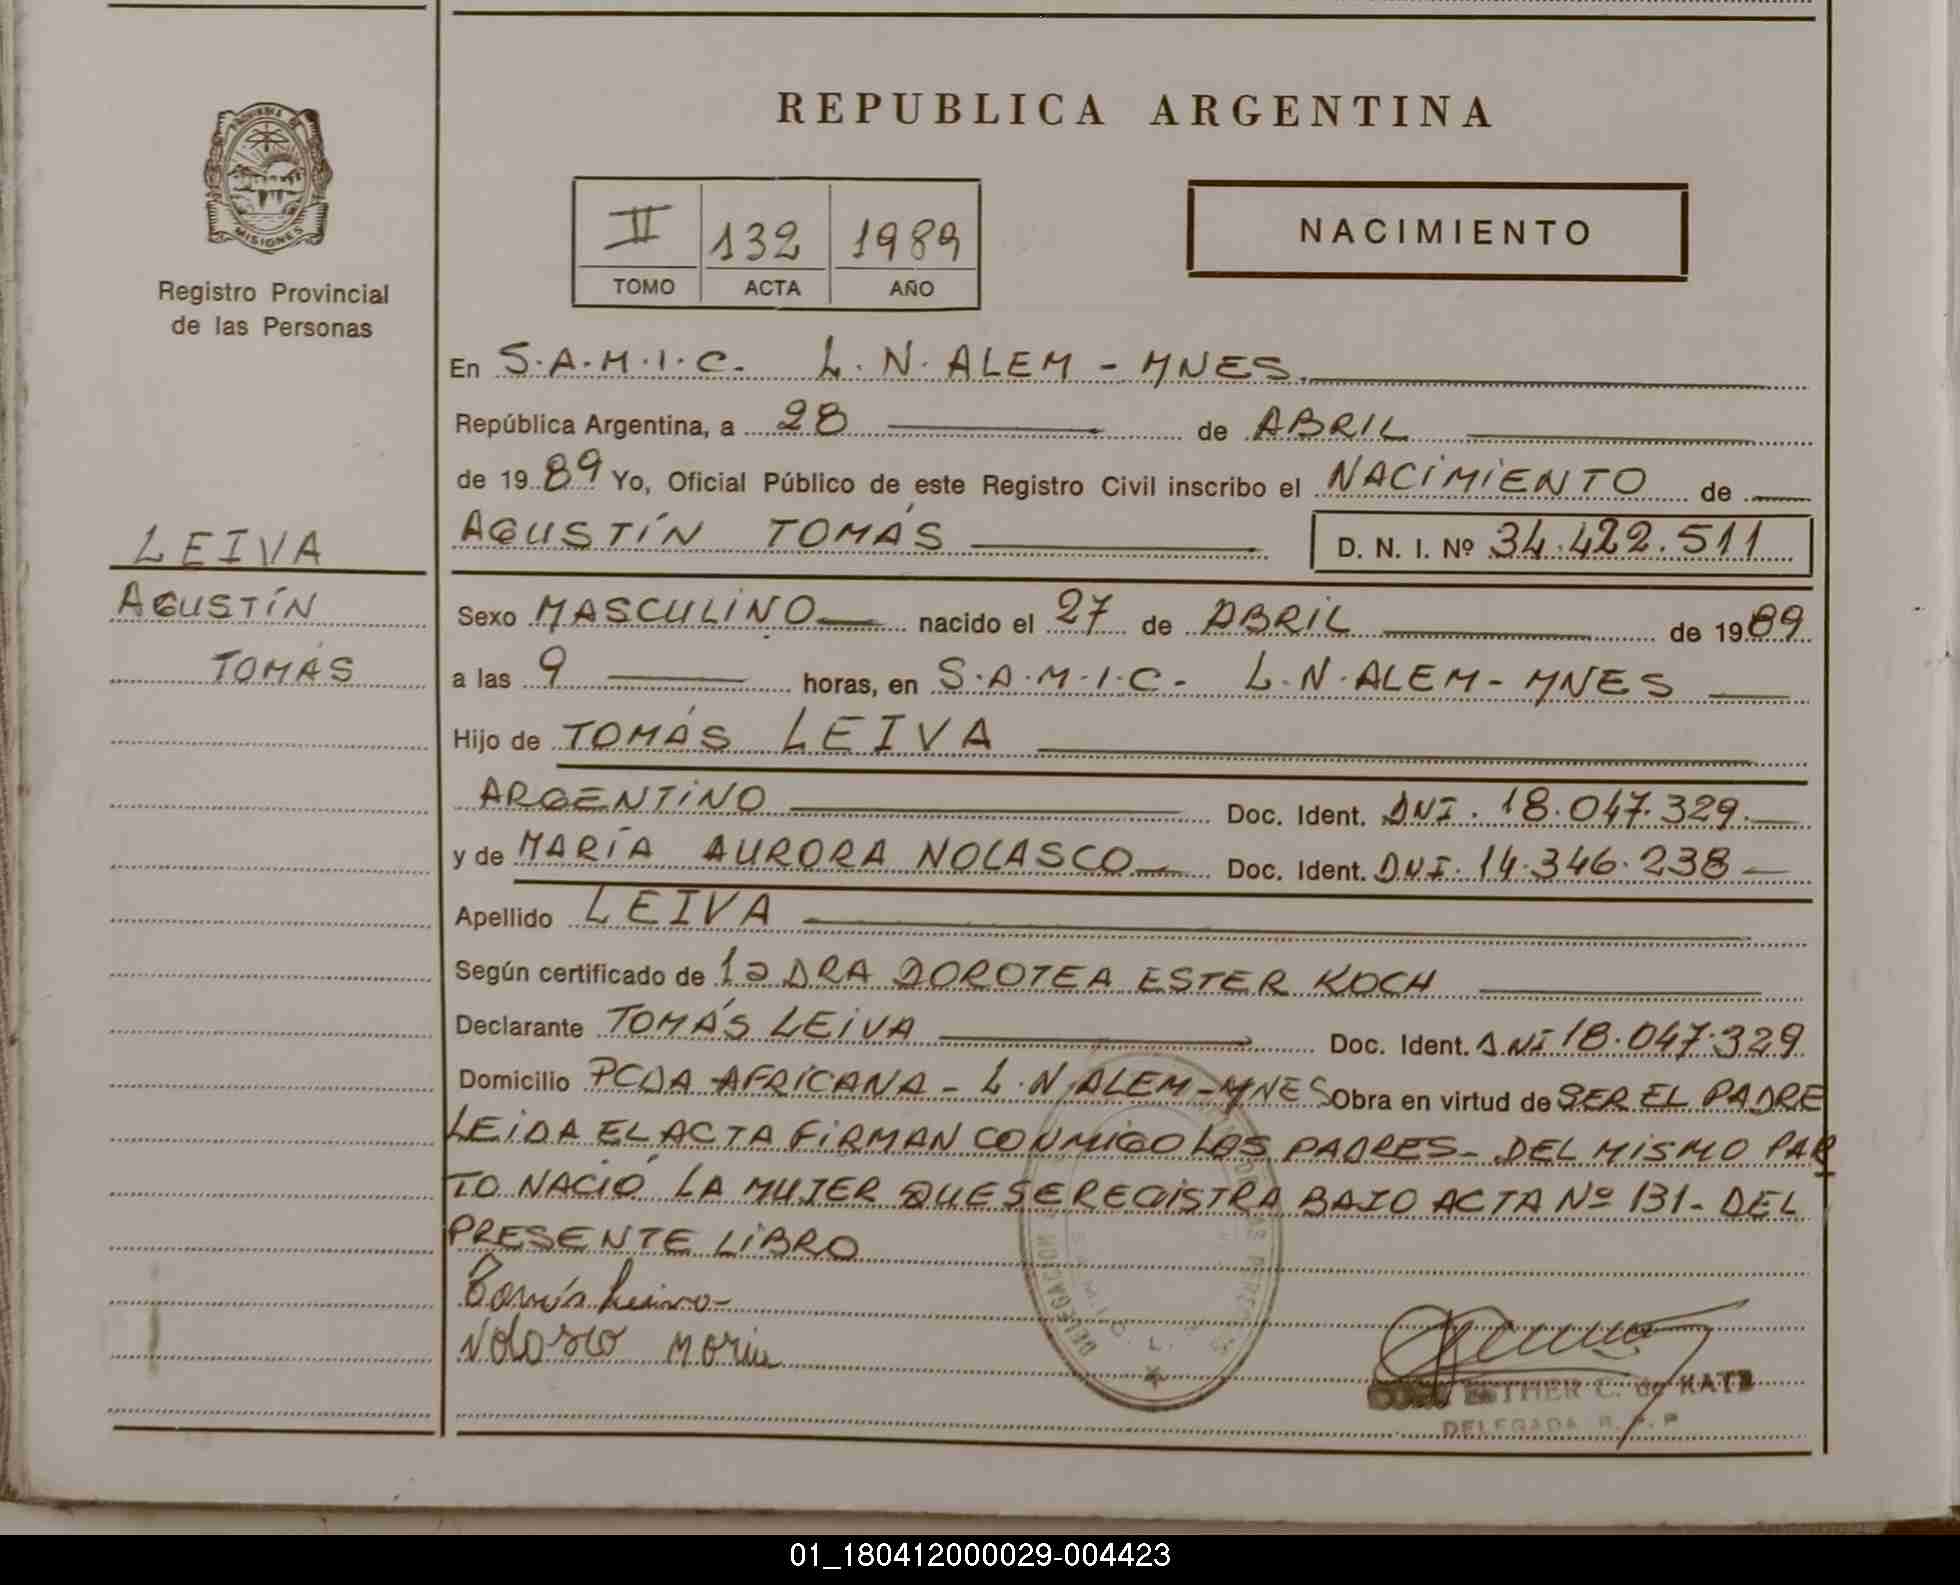 REPUBLICA ARGENTINA
PROVINCIA DE
MISIONES
Registro Provincial
de las Personas
II 132 1989
TOMO ACTA AÑO
NACIMIENTO
En S.A.M.I.C. L.N. ALEM - MNES.
República Argentina, a 28 de ABRIL
de 1989 Yo, Oficial Público de este Registro Civil inscribo el NACIMIENTO de
AGUSTÍN TOMÁS D. N. I. Nº 34.422.511
LEIVA
AGUSTÍN
TOMÁS
Sexo MASCULINO nacido el 27 de ABRIL de 1989
a las 9 horas, en S.A.M.I.C. - L.N. ALEM - MNES
Hijo de TOMÁS LEIVA
ARGENTINO Doc. Ident. DNI. 18.047.329.
y de MARÍA AURORA NOLASCO Doc. Ident. DNI. 14.346.238
Apellido LEIVA
Según certificado de la DRA DOROTEA ESTER KOCH
Declarante TOMÁS LEIVA Doc. Ident. DNI 18.047.329
Domicilio PCDA AFRICANA - L.N. ALEM - MNES Obra en virtud de SER EL PADRE
LEIDA EL ACTA FIRMAN CONMIGO LOS PADRES - DEL MISMO PAR
TO NACIÓ LA MUJER QUE SE REGISTRA BAJO ACTA Nº 131 - DEL
PRESENTE LIBRO
Tomás Leiva
Nolasco Maria
DELEGACION
ESTHER C. de KATZ
DELEGADA R. P. P.
01_180412000029-004423